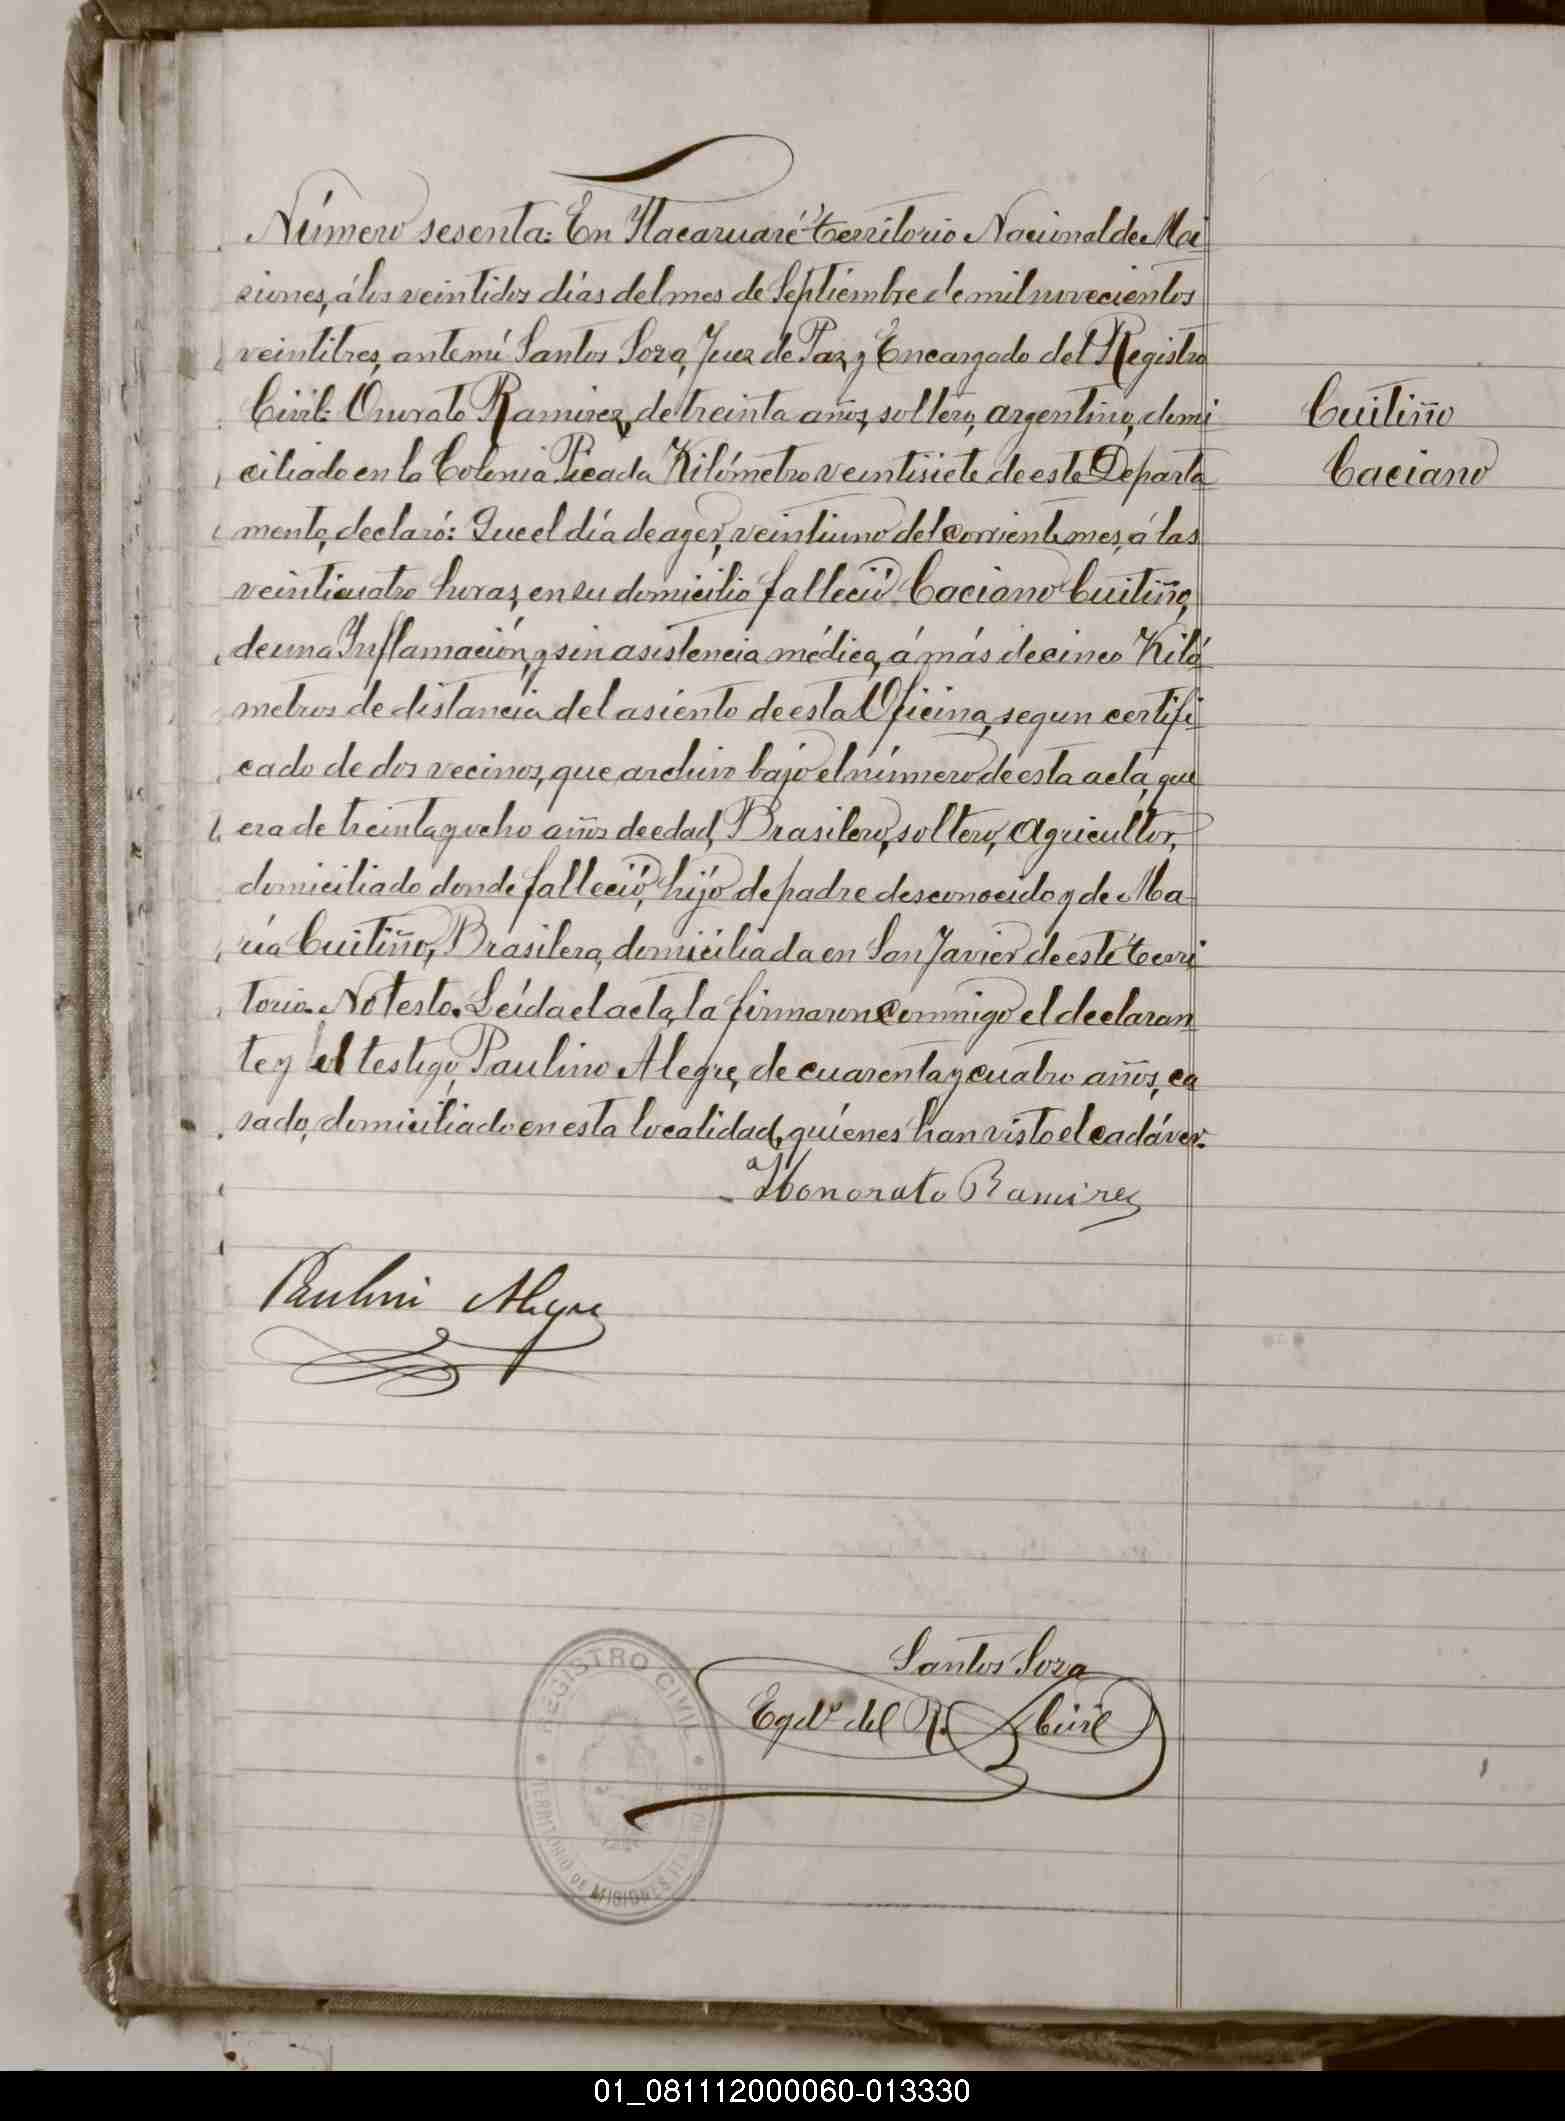 Número sesenta: En Itacaruaré territorio Nacional de Mi
siones, á los veintidos días del mes de Septiembre de mil novecientos
veintitres, ante mí Santos Soza, Juez de Paz, y Encargado del Registro
Civil: Onorato Ramirez, de treinta años, soltero, argentino, domi
ciliado en la Colonia Picada Kilómetro veintisiete de este Departa
mento, declaró: Que el día de ayer, veintiuno del corriente mes, á las
veinticuatro horas, en su domicilio falleció Caciano Cuitiño,
de una Inflamación, y sin asistencia médica, á más de cinco Kiló
metros de distancia del asiento de esta Oficina, segun certifi
cado de dos vecinos, que archivo bajo el número de esta acta, que
era de treinta y ocho años de edad, Brasilero, soltero, Agricultor,
domiciliado donde falleció, hijo de padre desconocido y de Ma
ría Cuitiño, Brasilera, domiciliada en San Javier de este terri
torio. No testo. Leída el acta, la firmaron conmigo el declaran
te y el testigo, Paulino Alegre, de cuarenta y cuatro años, ca
sado, domiciliado en esta localidad, quiénes han visto el cadáver.
Cuitiño
Caciano
Honorato Ramirez
Paulino Alegre
Santos Soza
Egdo. del R. Civil
REGISTRO CIVIL
TERRITORIO DE MISIONES
01_081112000060-013330